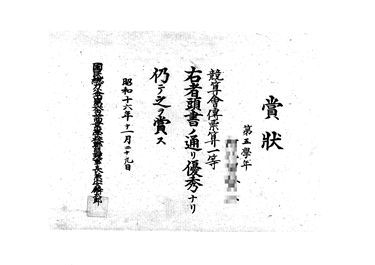 賞狀
第五學年
競算會傳票算一等
右者頭書ノ通リ優秀ナリ
仍テ之ヲ賞ス
昭和十六年十一月二十九日